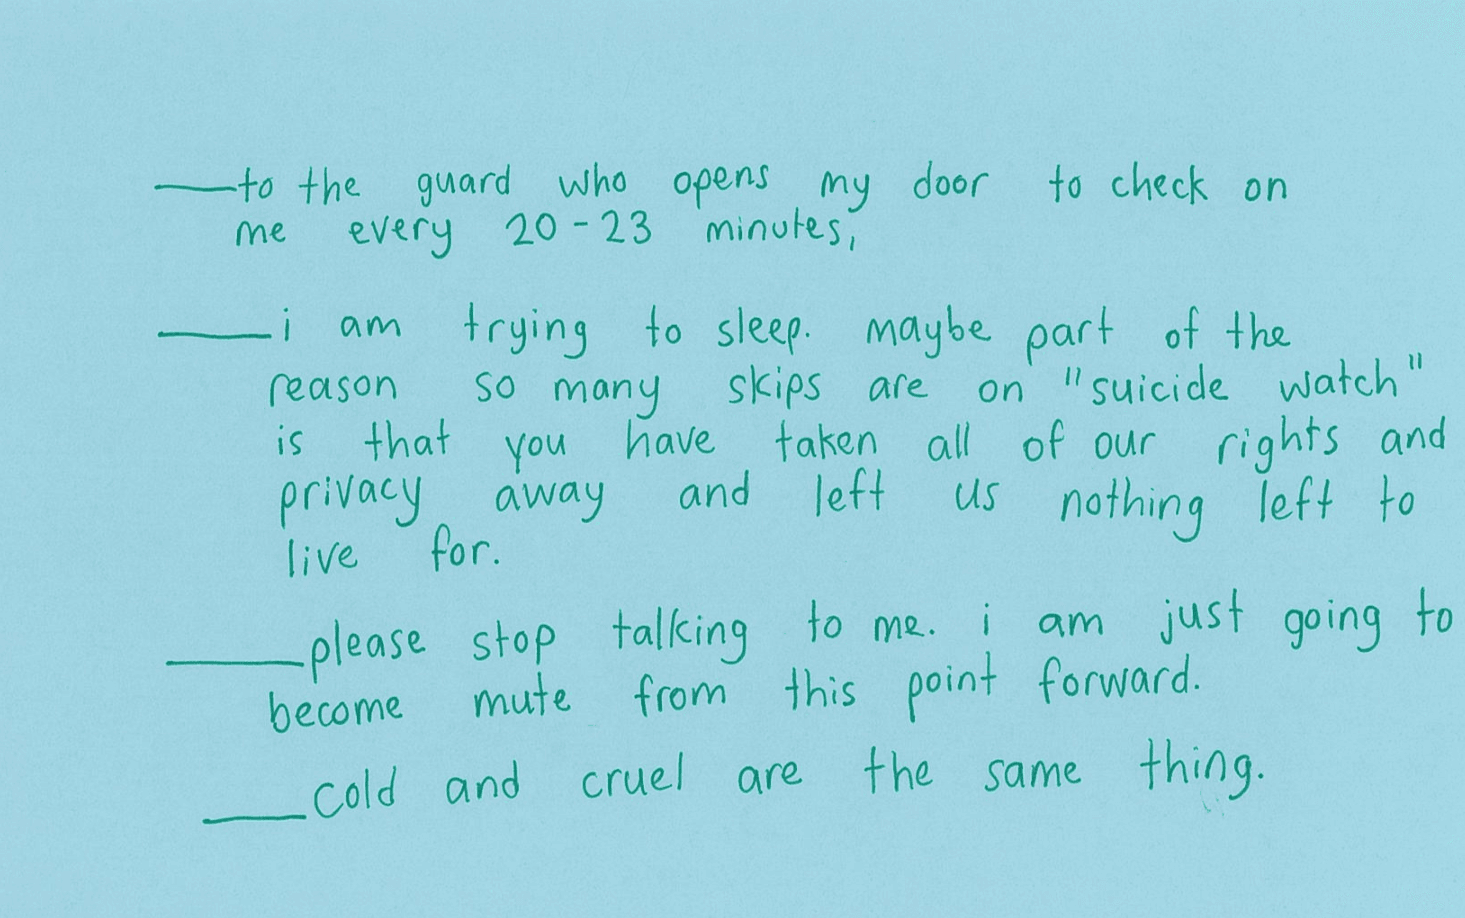 to the guard who opens my door to check on
me every 20-23 minutes,
i am trying to sleep. maybe part of the
reason so many skips are on "suicide watch"
is that you have taken all of our rights and
privacy away and left us nothing left to
live for.
please stop talking to me. i am just going to
become mute from this point forward.
cold and cruel are the same thing.